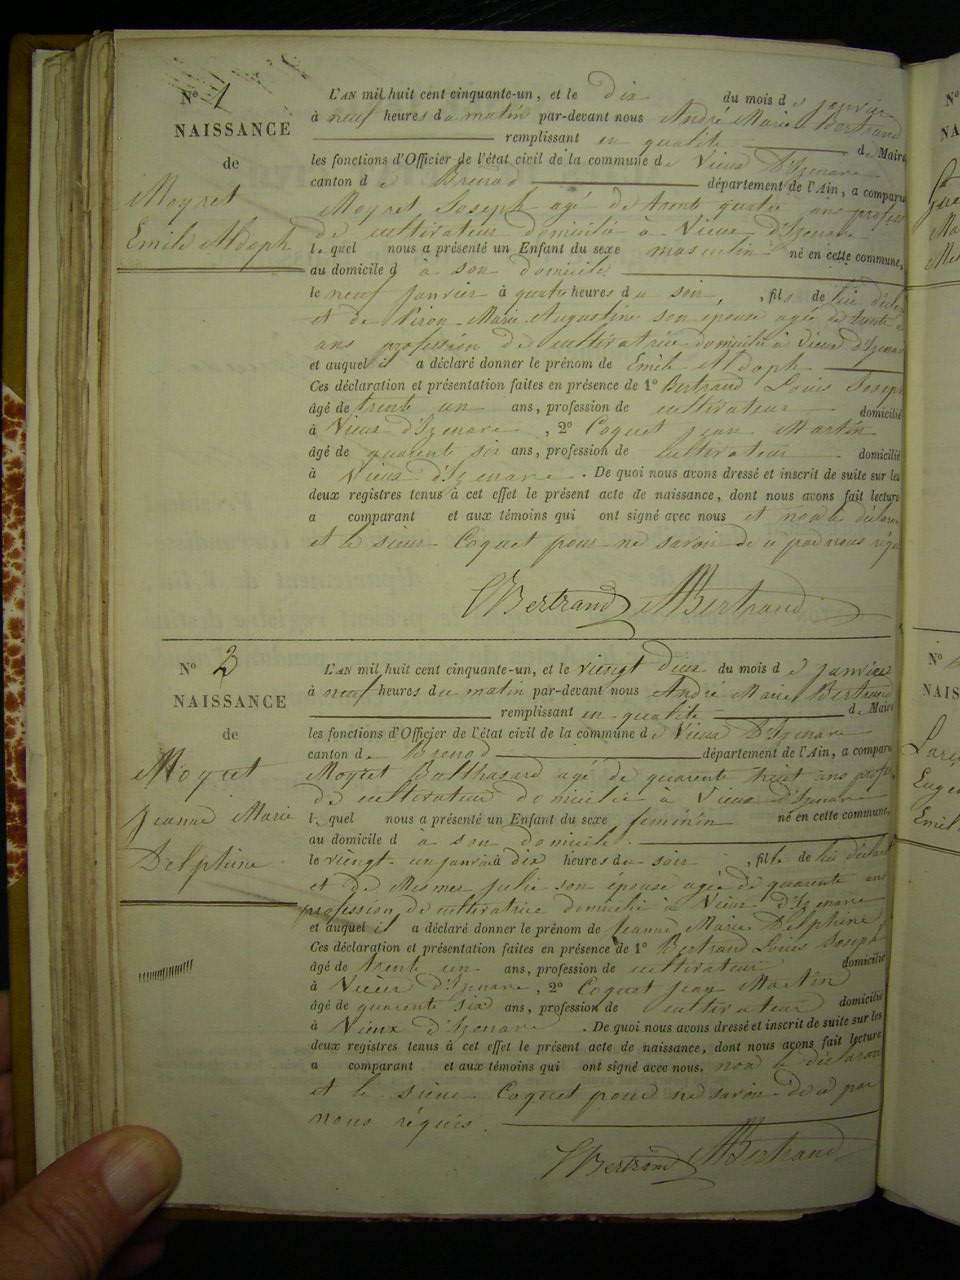 N° 1
NAISSANCE
de
Moyret
Emile Adoph
L'AN mil huit cent cinquante-un, et le dix du mois de janvier
à neuf heures du matin par-devant nous André Marie Bertrand
remplissant en qualité de Maire
les fonctions d'Officier de l'état civil de la commune de Vieux D'Izenave
canton de Brenod département de l'Ain, a comparu
Moyret Joseph agé de trente quatre ans profess
de cultivateur domicilié à Vieux d'Izenave
lequel nous a présenté un Enfant du sexe masculin né en cette commune,
au domicile d à son domicile
le neuf janvier à quatre heures du soir, , fils de lui décla
et de Piron Marie Augustine son épouse agée de trente
ans profession de cultivatrice domiciliée à Vieux d'Izenave
et auquel il a déclaré donner le prénom de Emile Adoph
Ces déclaration et présentation faites en présence de 1° Bertrand Louis Joseph
âgé de trente un ans, profession de cultivateur domicilié
à Vieux d'Izenave , 2° Coquet jean Martin
âgé de quarente six ans, profession de cultivateur domicilié
à Vieux d'Izenave . De quoi nous avons dressé et inscrit de suite sur les
deux registres tenus à cet effet le présent acte de naissance, dont nous avons fait lecture
a comparant et aux témoins qui ont signé avec nous et non le déclaran
et le sieur Coquet pour ne savoir de ce par nous réqu
LBertrand AMBertrand
N° 2
NAISSANCE
de
Moyret
Jeanne Marie
Delphine
L'AN mil huit cent cinquante-un, et le viengt deux du mois de janvier
à neuf heures du matin par-devant nous André Marie Bertrand
remplissant en qualité de Maire
les fonctions d'Officier de l'état civil de la commune de Vieux D'Izenave
canton de Brenod département de l'Ain, a comparu
Moyret Balthasard agé de quarente huit ans profes
de cultivateur domicilié à Vieux d'Izenave
lequel nous a présenté un Enfant du sexe feminin né en cette commune,
au domicile d a son domicile.
le viengt un janvier à dix heures du soir , fille de lui déclarant
et de Mesmer Julie son épouse agée de quarente ans
profession de cultivatrice domiciliée à Vieux d'Izenave
et auquel il a déclaré donner le prénom de Jeanne Marie Delphine
Ces déclaration et présentation faites en présence de 1° Bertrand Louis Joseph
âgé de trente un ans, profession de cultivateur domicilié
à Vieux d'Izenave , 2° Coquet jean Martin
âgé de quarente six ans, profession de cultivateur domicilié
à Vieux d'Izenave . De quoi nous avons dressé et inscrit de suite sur les
deux registres tenus à cet effet le présent acte de naissance, dont nous avons fait lecture
a comparant et aux témoins qui ont signé avec nous. non le déclarant
et le sieur Coquet pour ne savoir de ce par
nous réquis.
LBertrand AMBertrand